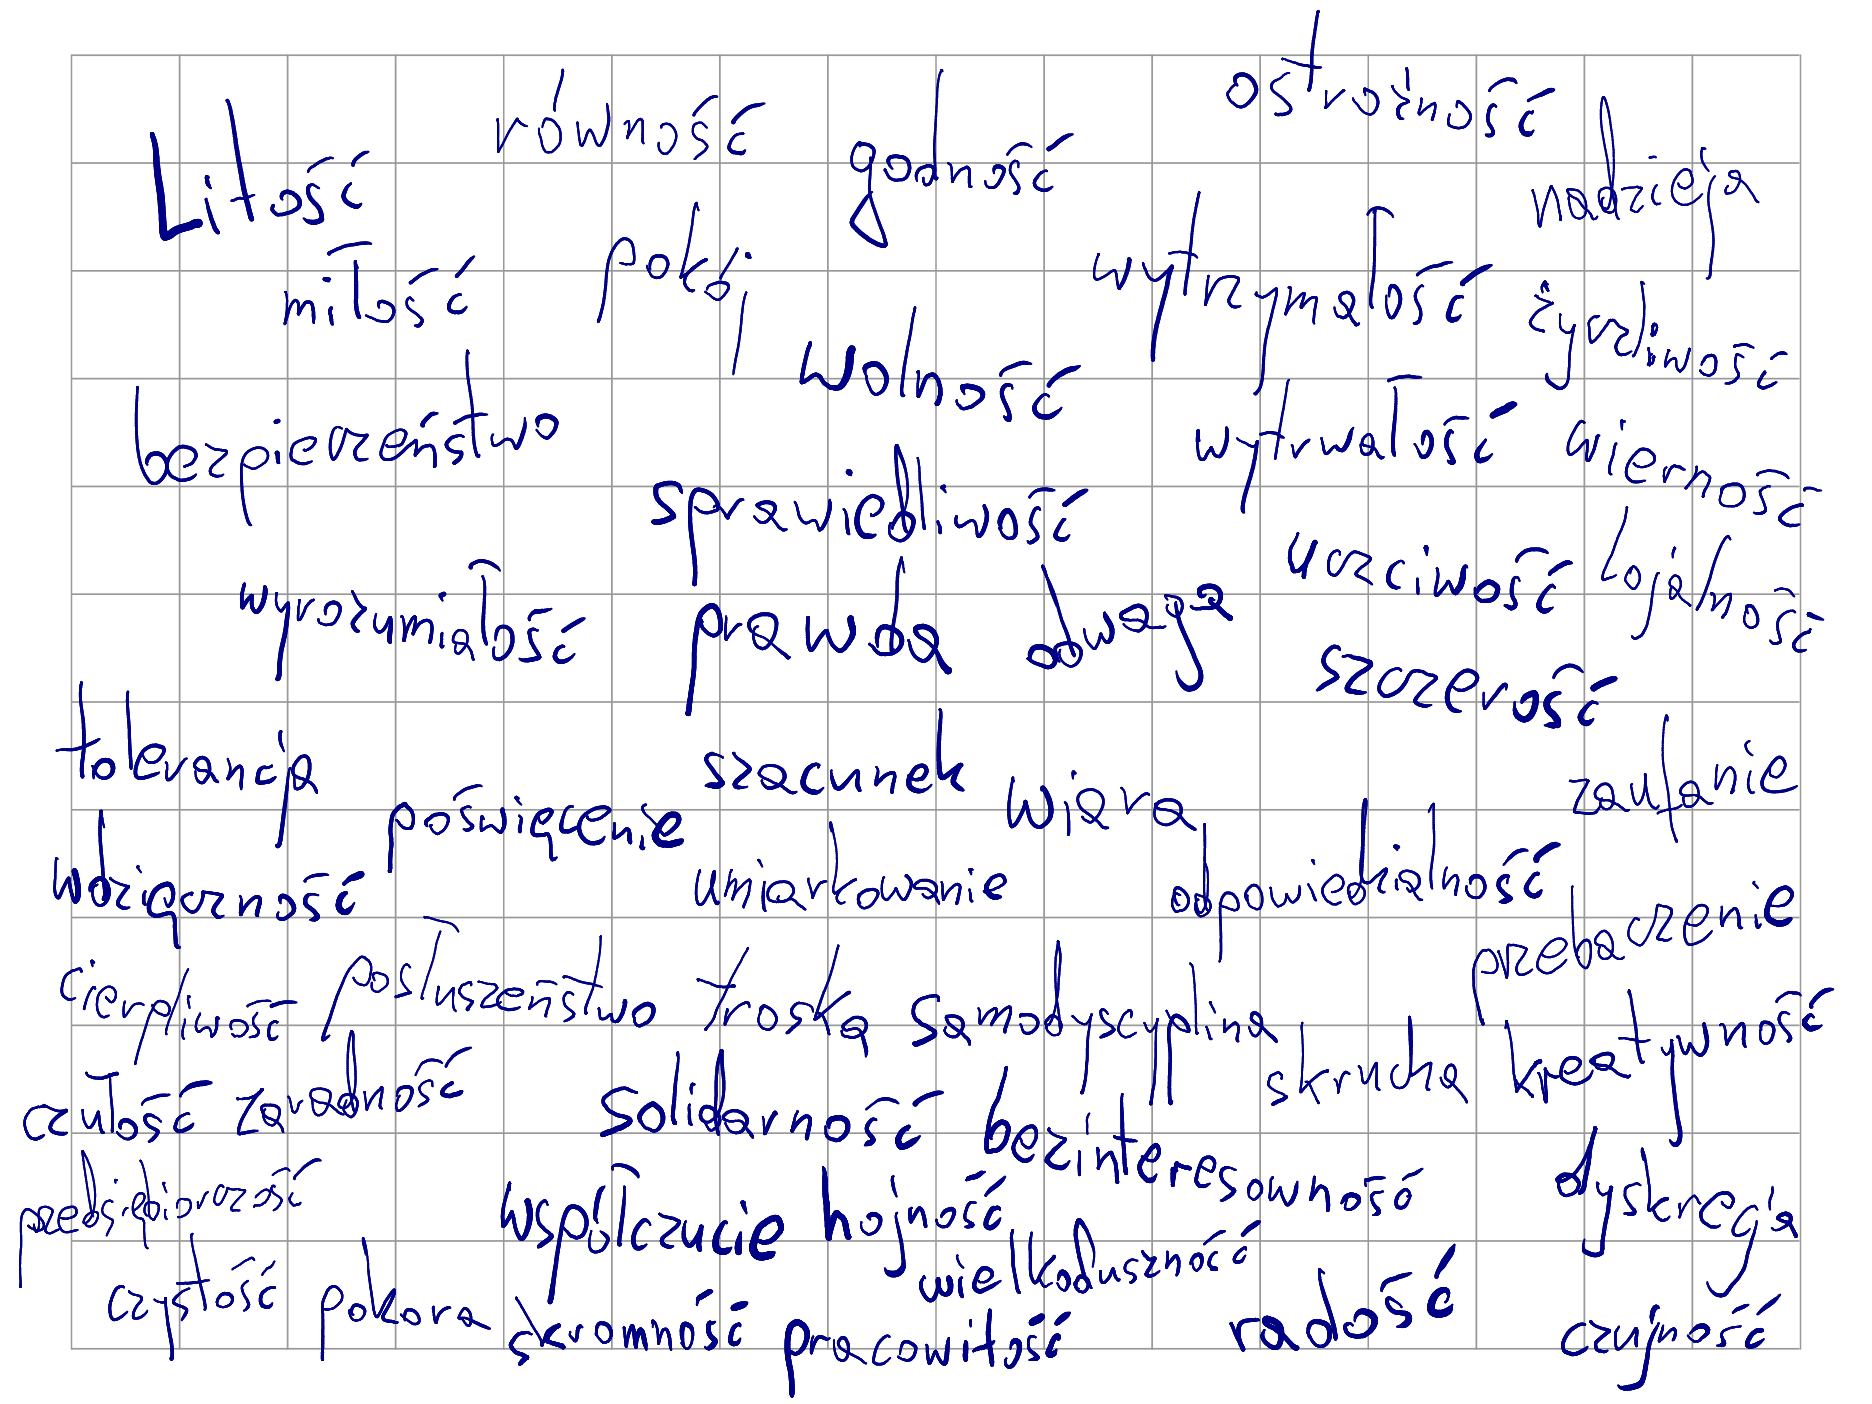 ostrożność
równość godność
nadzieja
Litość
miłość pokój wytrzymałość życzliwość
wolność
bezpieczeństwo wytrwałość wierność
sprawiedliwość
uczciwość lojalność
wyrozumiałość prawda odwaga
szczerość
tolerancja szacunek wiara zaufanie
poświęcenie
wdzięczność umiarkowanie odpowiedzialność
przebaczenie
cierpliwość posłuszeństwo troska samodyscyplina
skrucha kreatywność
czułość zaradność solidarność bezinteresowność
przedsiębiorczość współczucie hojność dyskrecja
wielkoduszność
czystość pokora skromność pracowitość radość czujność